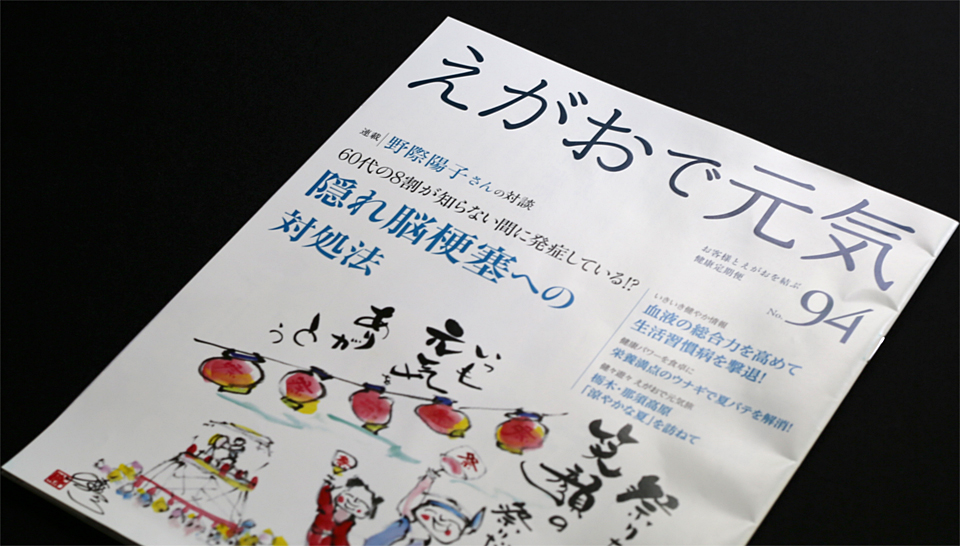 えがおで元気
連載 野際陽子さんの対談
60代の8割が知らない間に発症している!?
隠れ脳梗塞への
対処法
お客様とえがおを結ぶ
健康定期便
No.94
いきいき健やか情報
血液の総合力を高めて
生活習慣病を撃退!
健康パワーを食卓に
栄養満点のウナギで夏バテを解消!
種々遊々えがおで元気旅
栃木・那須高原
「涼やかな夏」を訪ねて
いつも
元気を
あり
がと
う
祭
祭
祭
祭
祭
祭
祭
祭りだ
笑顔の
祭りだ